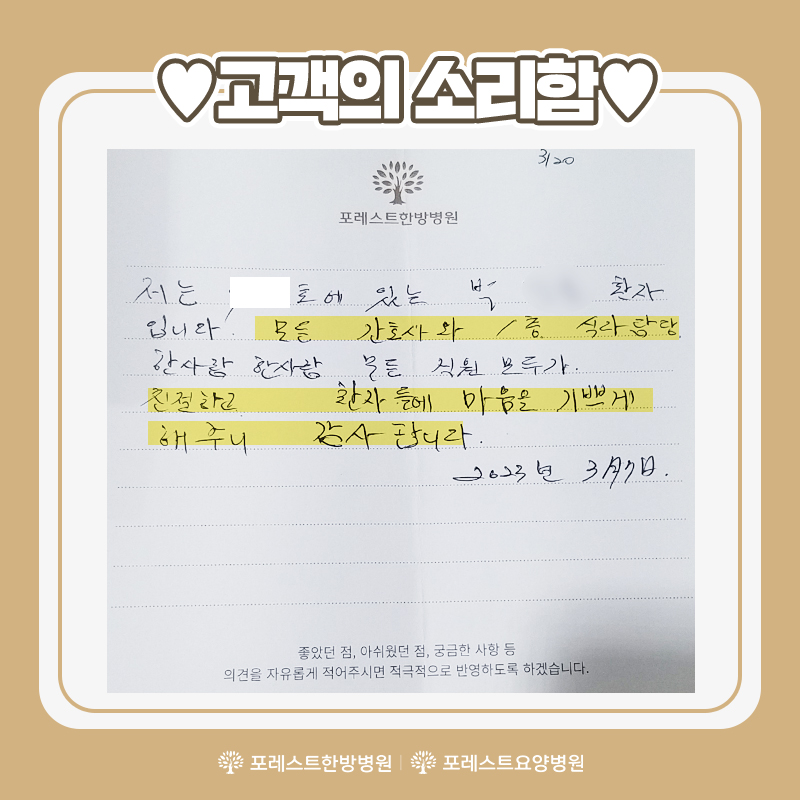 ♥고객의 소리함♥
3/20
포레스트한방병원
저는 호에 있는 박 환자
입니다! 모든 간호사와 1층 식당
한사람 한사람 모든 직원 모두가.
친절하고 환자들에 마음을 기쁘게
해주니 감사합니다.
2023년 3月7日.
좋았던 점, 아쉬웠던 점, 궁금한 사항 등
의견을 자유롭게 적어주시면 적극적으로 반영하도록 하겠습니다.
포레스트한방병원 | 포레스트요양병원